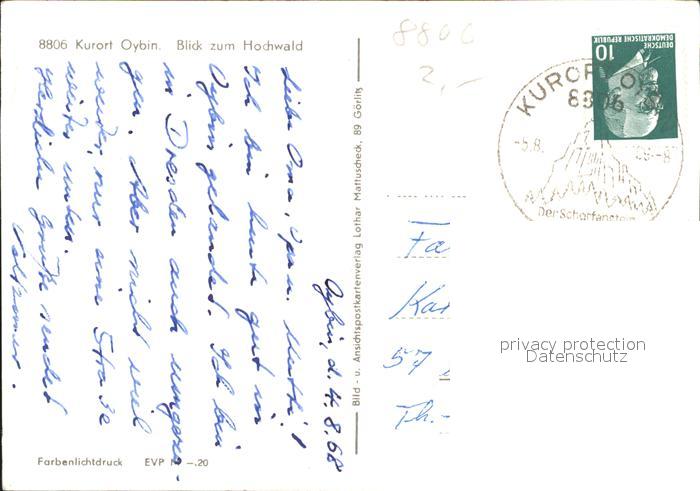 8806 Kurort Oybin. Blick zum Hochwald
Oybin, d. 4.8.68
Liebe Oma, Opa u. Mutti!
Ich bin heute gut in
Oybin gelandet. Ich bin
in Dresden auch umgezo-
gen. Aber nicht viel
weiter, nur eine Straße
weiter unten.
Herzliche Grüße sendet
Farbenlichtdruck EVP M –.20
Bild - u. Ansichtspostkartenverlag Lothar Mattuscheck, 89 Görlitz
8806
2,-
DEUTSCHE
DEMOKRATISCHE REPUBLIK
10
KURORT OYBIN
8806
-5.8.
-8
Der Scharfenstein
Fa
Kar
57
Th.-
privacy protection
Datenschutz